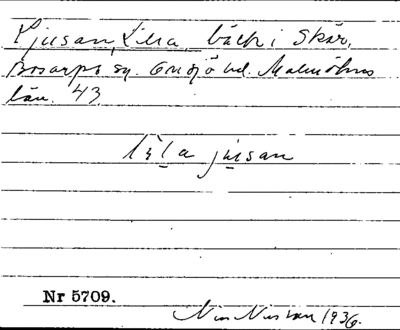 Ljusan, Lilla, bäck i Skår,
Bosarps sn. Onsjö hd. Malmöhus
län. 43
lìl̲a ju̲san
Nr 5709.
1936.